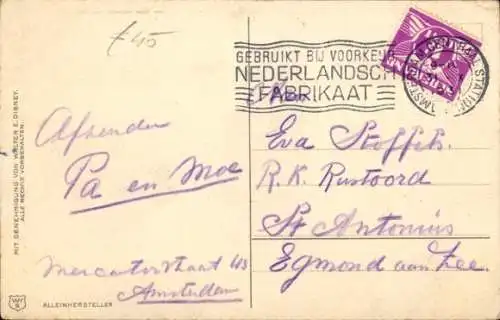 £45
GEBRUIKT BIJ VOORKEUR
NEDERLANDSCH
FABRIKAAT
CENTRAAL STATION
Aan
Afzender
Pa en Moe
Mercatorstraat 43
Amsterdam
Eva Stoffels
R.K. Rustoord
St Antonius
Egmond aan Zee.
MIT GENEHMIGUNG VON WALTER E. DISNEY.
ALLE RECHTE VORBEHALTEN.
ALLEINHERSTELLER